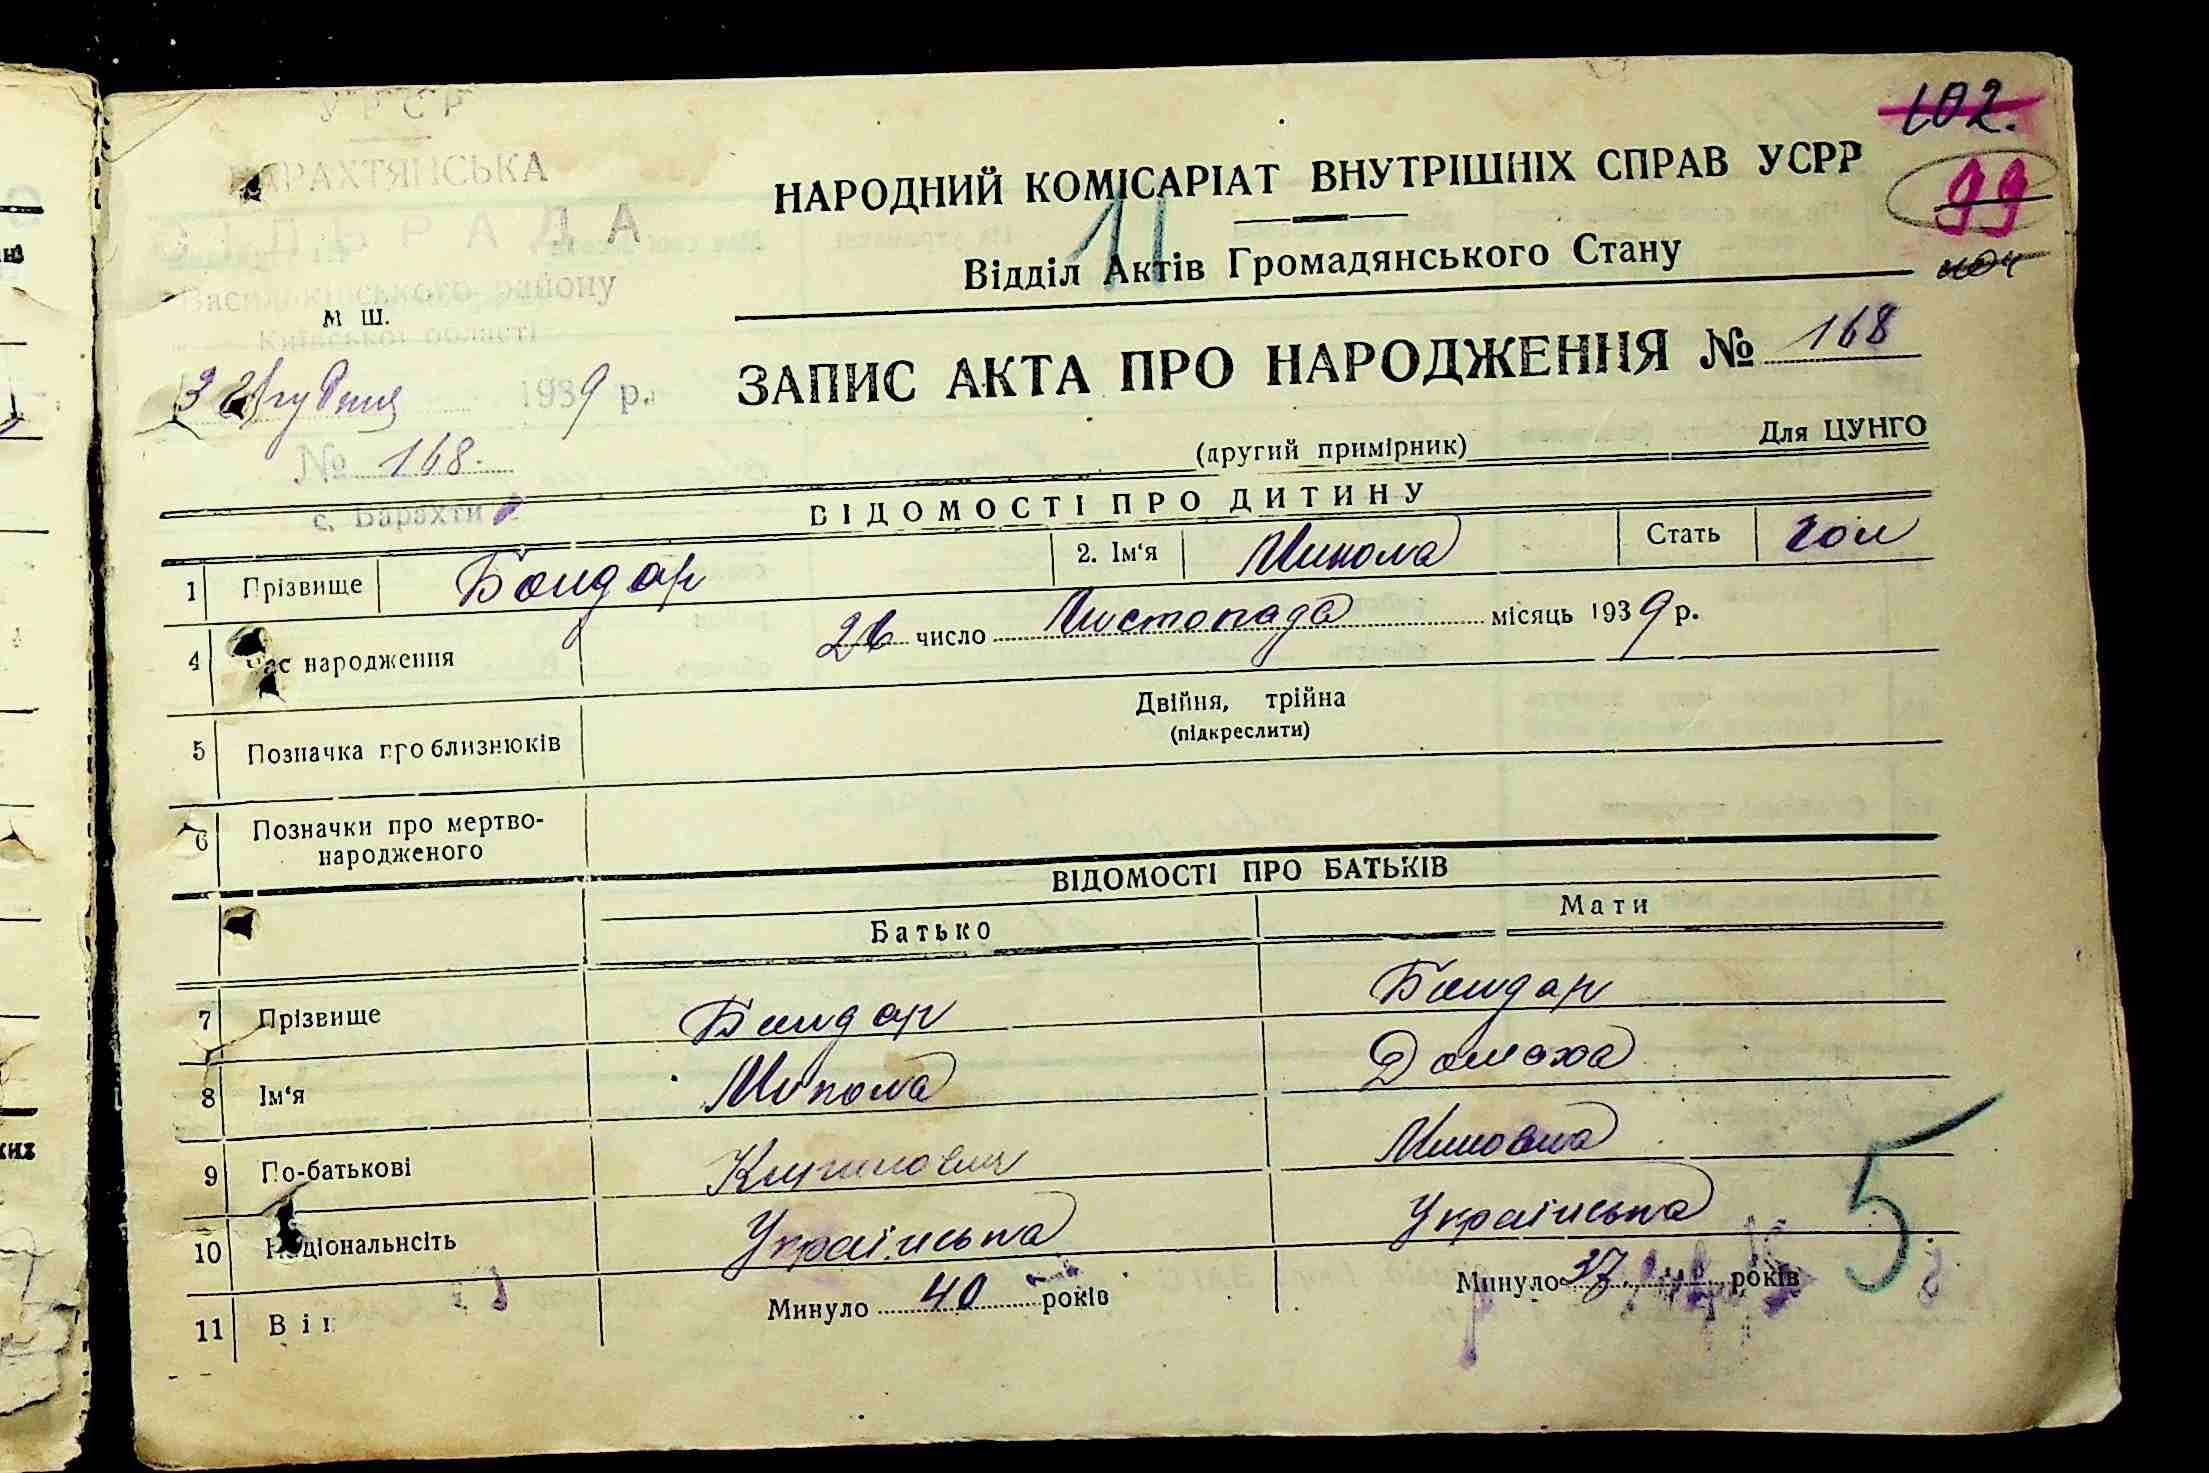 102.
99
УРСР
БАРАХТЯНСЬКА
СІЛЬРАДА
Васильківського району
Київської області
М Ш.
3 грудня 1939 р.
№ 168.
с. Барахти
НАРОДНИЙ КОМІСАРІАТ ВНУТРІШНІХ СПРАВ УСРР
11
Відділ Актів Громадянського Стану
ЗАПИС АКТА ПРО НАРОДЖЕННЯ № 168
(другий примірник) Для ЦУНГО
ВІДОМОСТІ ПРО ДИТИНУ
1 Прізвище Бондар 2. Ім‘я Микола Стать чол
4 Час народження 26 число Листопада місяць 1939 р.
5 Позначка про близнюків Двійня, трійна
(підкреслити)
6 Позначки про мертво-
народженого
ВІДОМОСТІ ПРО БАТЬКІВ
Батько Мати
7 Прізвище Бондар Бондар
8 Ім‘я Микола Домаха
9 По-батькові
10 Національнсіть Українська Українська
11 Вік Минуло 40 років Минуло 37 років
5